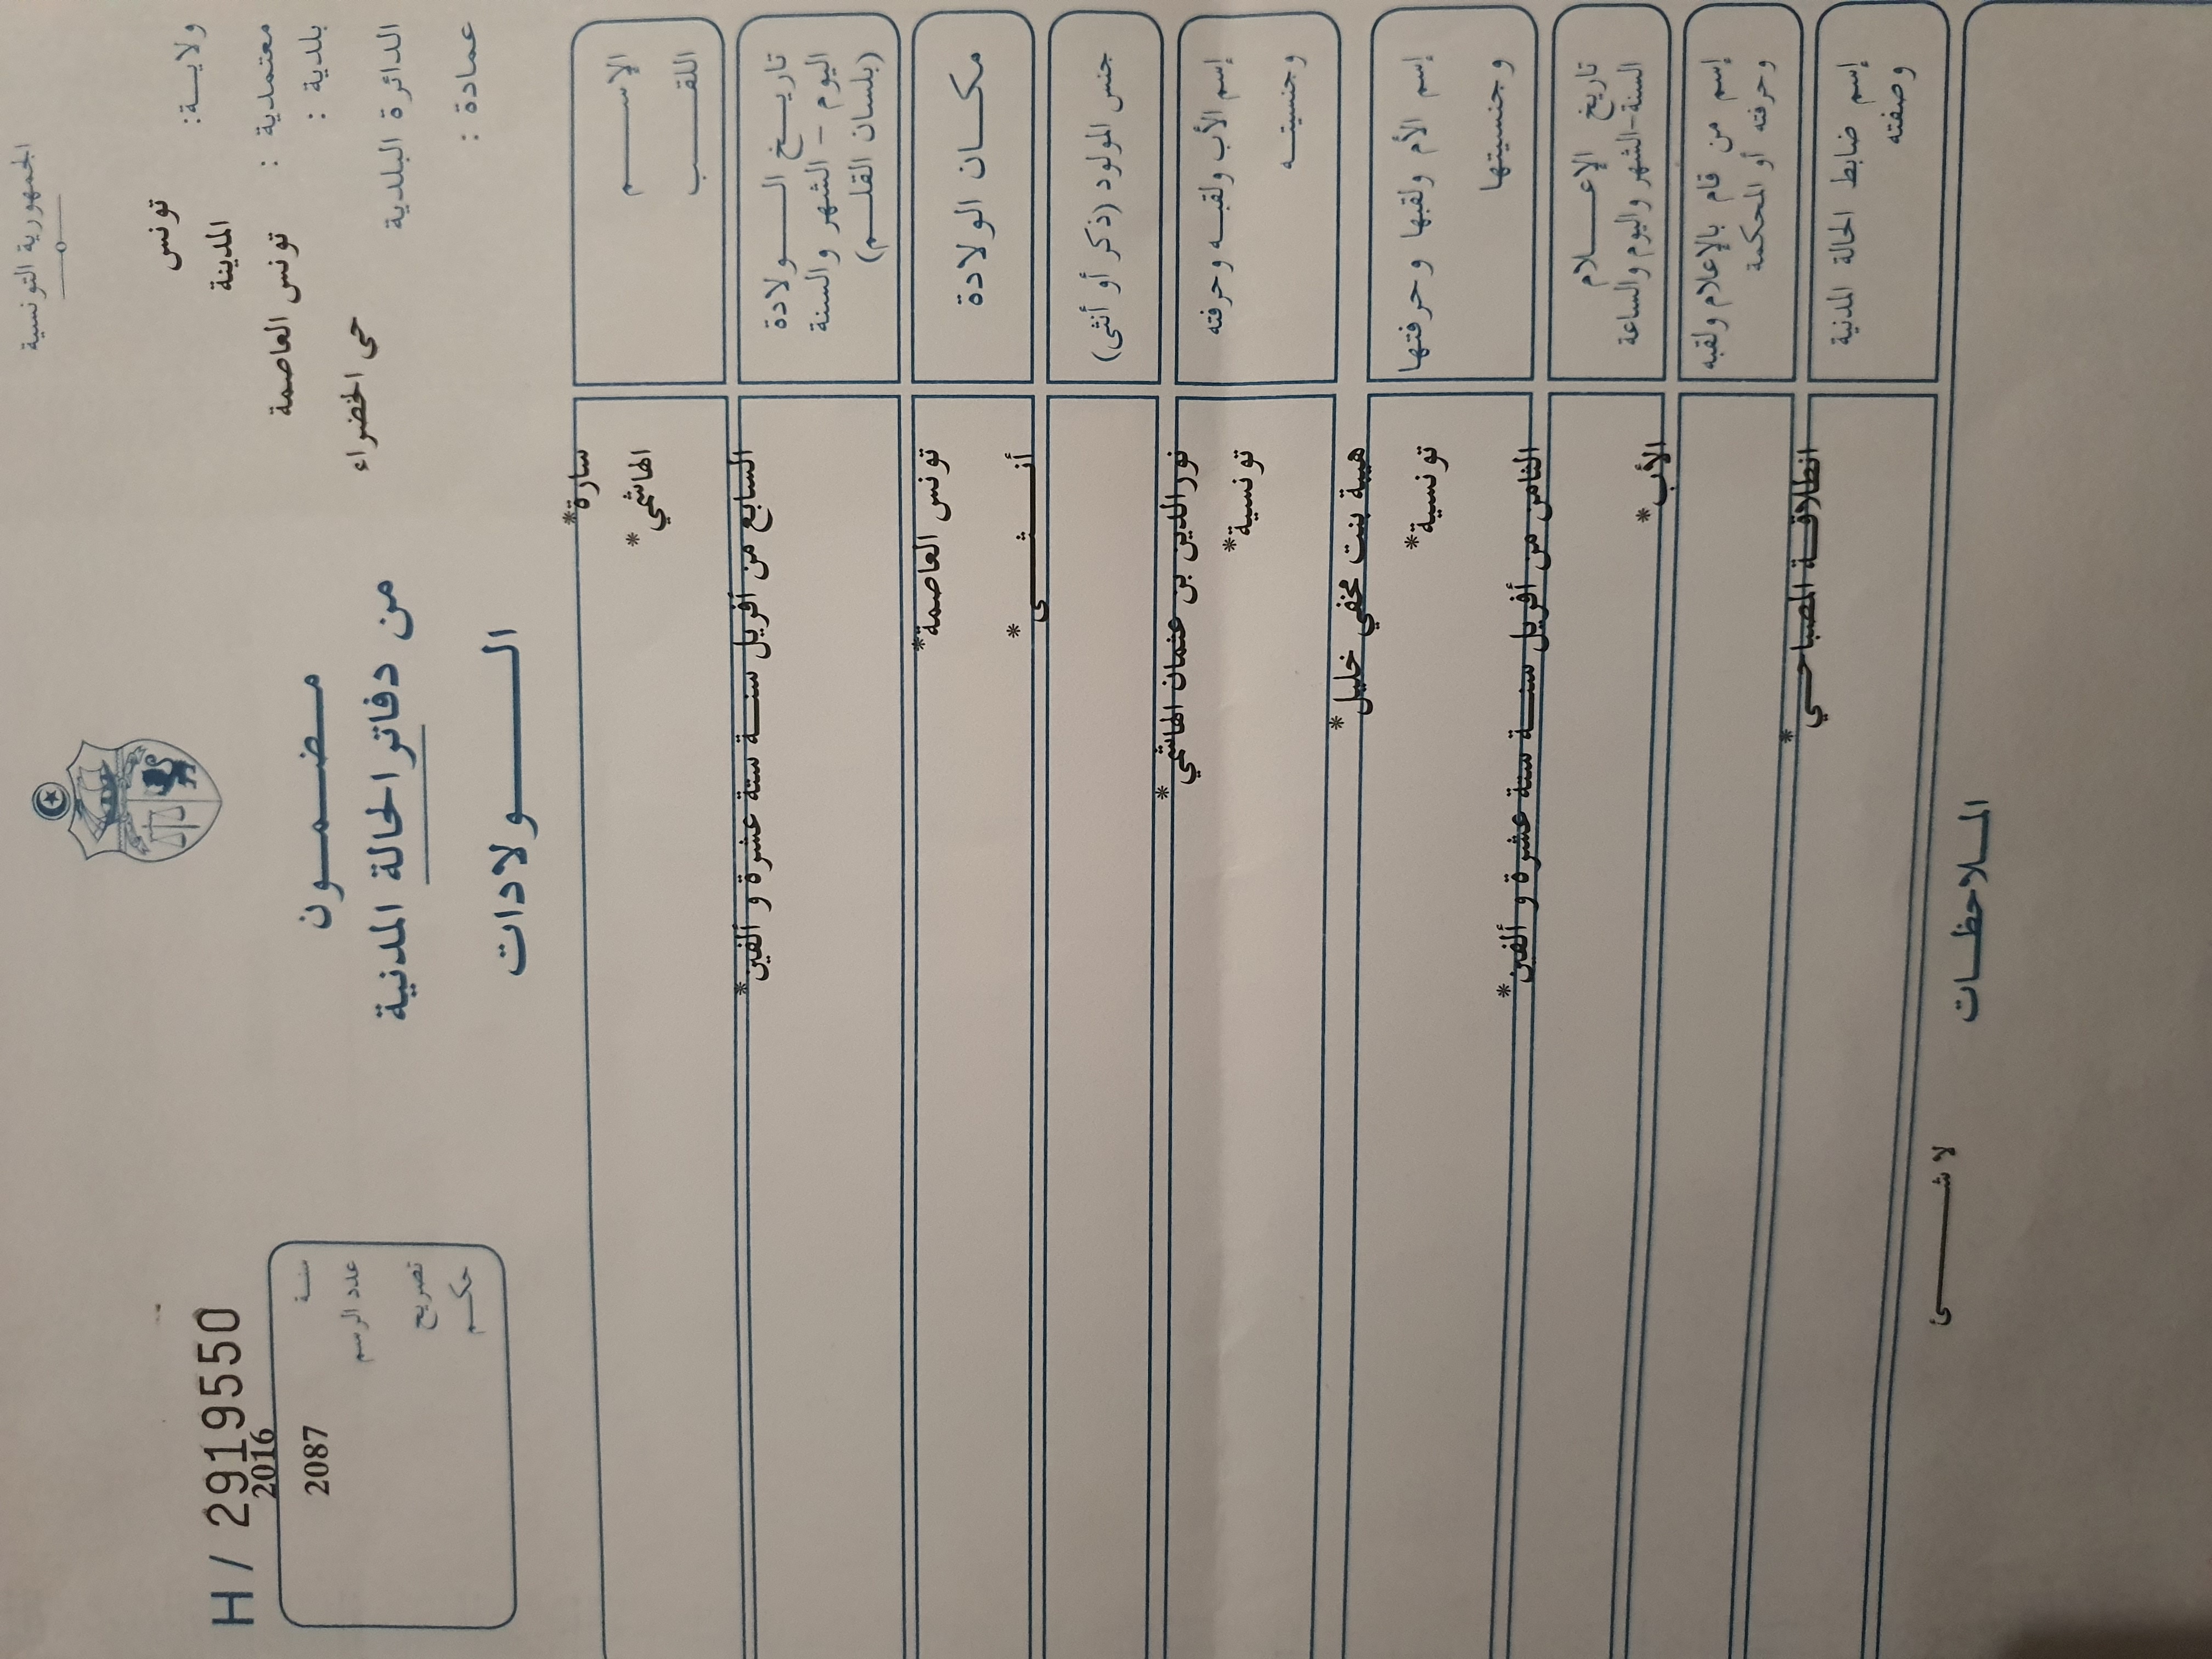 الجمهورية التونسية
ولايـــة: تونس
معتمدية : المدينة
بلدية : تونس العاصمة
الدائرة البلدية حي الخضراء
عمادة :
مـضــمــون
من دفاتر الحالة المدنية
الــــولادات
H / 2919550
سنـة 2016
عدد الرسم 2087
تصريح
حكـم
الإســـم سارة*
اللقـــب الهاشمي *
تاريــخ الـــولادة
اليوم – الشهر والسنة
(بلسان القلــم)
السابع من أفريل سنــة ستة عشرة و ألفين *
مكــان الولادة تونس العاصمة*
جنس المولود (ذكر أو أنثى) أنـــثــــى *
إسم الأب ولقبــه وحرفته نور الدين بن عثمان الهاشمي *
وجنسيتــه تونسية*
إسم الأم ولقبها وحرفتها هيبة بنت مخفي خليل *
وجنسيتها تونسية*
تاريخ الإعـــلام
السنة-الشهر واليوم والساعة
الثامن من أفريل سنــة ستة عشرة و ألفين *
إسم من قام بالإعلام ولقبه
وحرفته أو المحكمة
الأب *
إسم ضابط الحالة المدنية
وصفته
انطلاقــة الصباحــي *
المــلاحظــات
لا شـــــئ